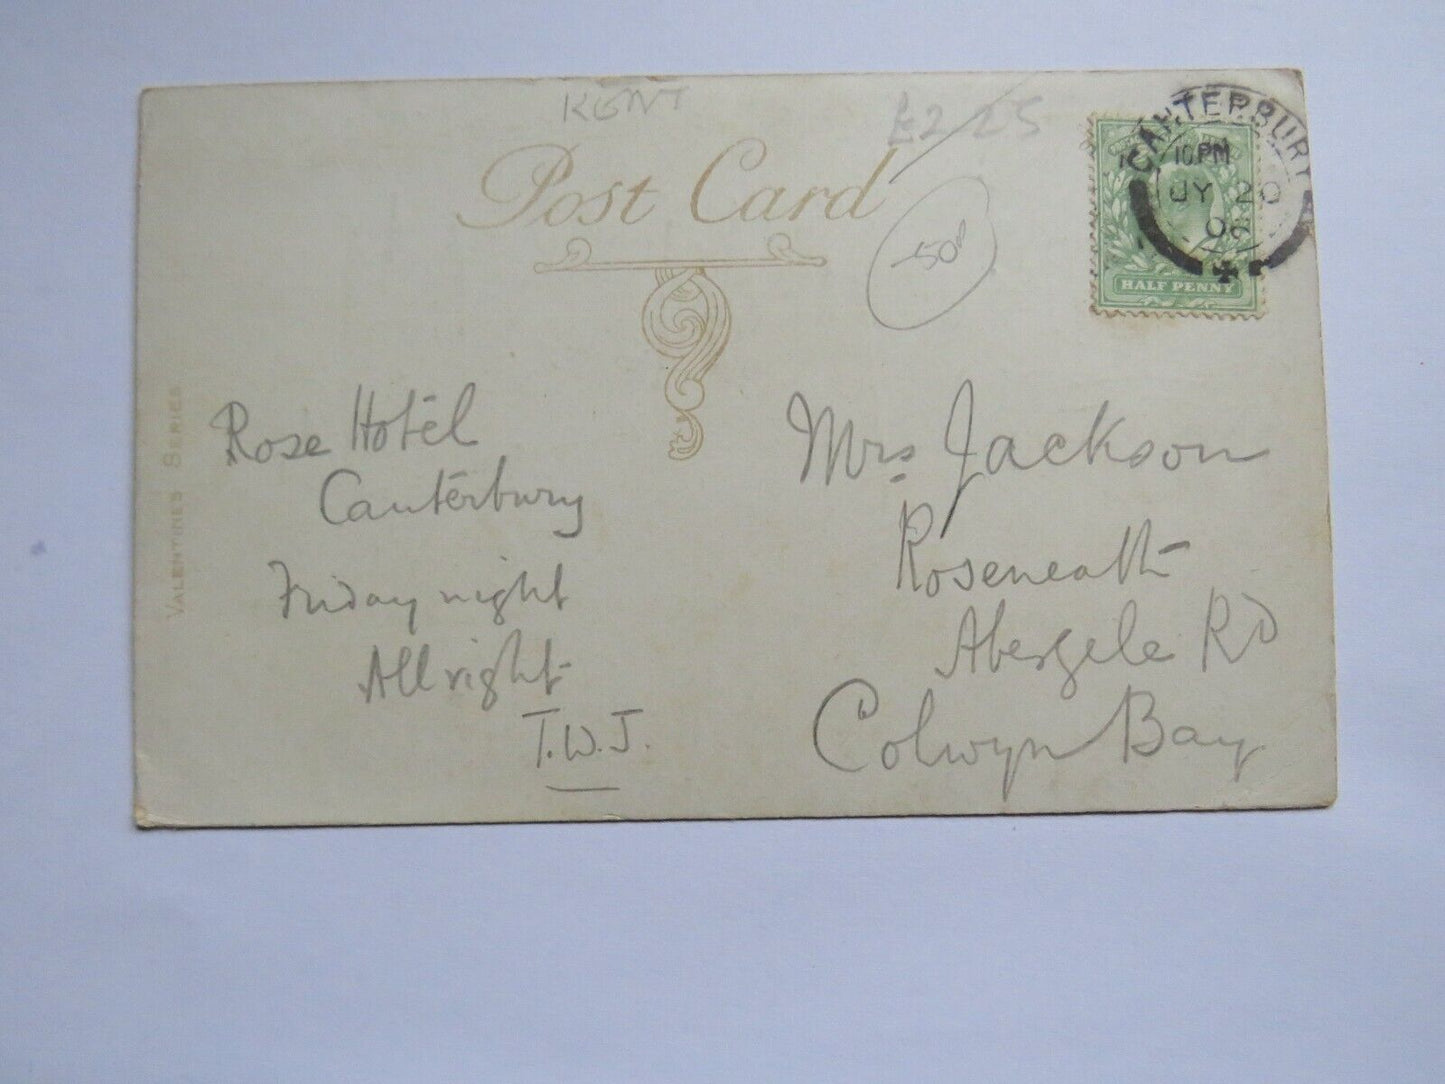 KENT
£2 25
Post Card
50p
CANTERBURY
10 PM
JY 20
06
HALF PENNY
VALENTINES SERIES
Rose Hotel
Canterbury
Friday night
All right
T.W.J.
Mrs Jackson
Roseneath
Abergele Rd
Colwyn Bay